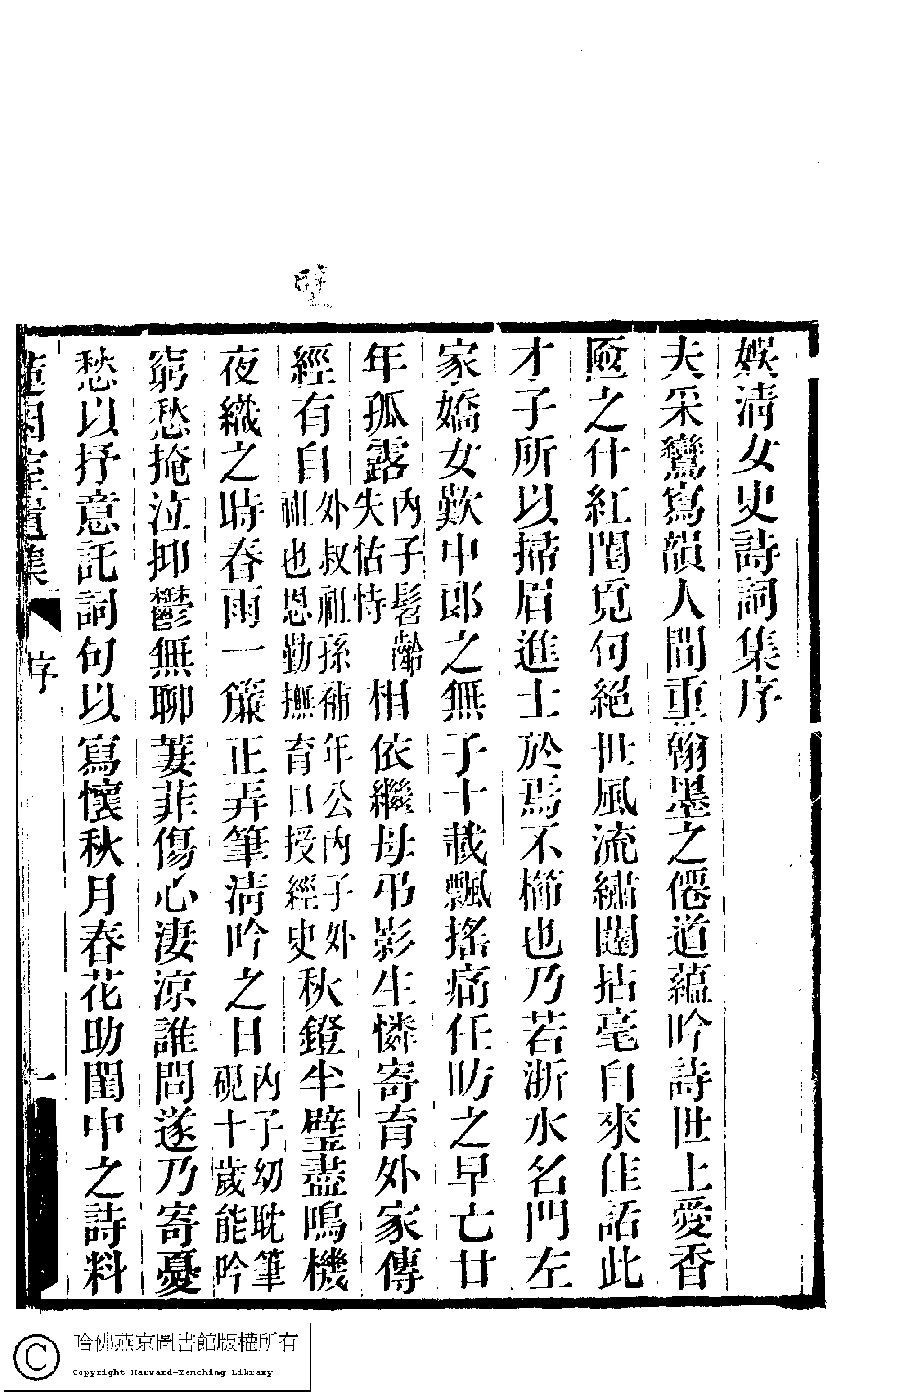 娛清女史詩詞集序
夫采鸞寫韻人間重翰墨之僊道蘊吟詩世上愛香
奩之什紅閨覓何絕世風流繡闥拈毫自來佳話此
才子所以掃眉進士於焉不櫛也乃若浙水名門左
家嬌女歎中郎之無子十載飄搖痛任昉之早亡廿
年孤露內子髫齡失怙恃相依繼母弔影生憐寄育外家傳
經有自外叔祖孫補年公內子外祖也恩勤撫育日授經史秋鐙半壁盡鳴機
夜織之時春雨一簾正弄筆清吟之日內子幼耽筆硯十歲能吟
窮愁掩泣抑鬱無聊萋菲傷心淒涼誰問遂乃寄憂
愁以抒意託詞句以寫懷秋月春花助閨中之詩料
室遺集
序
一
壁
哈佛燕京圖書館版權所有
Copyright Harvard-Yenching Library